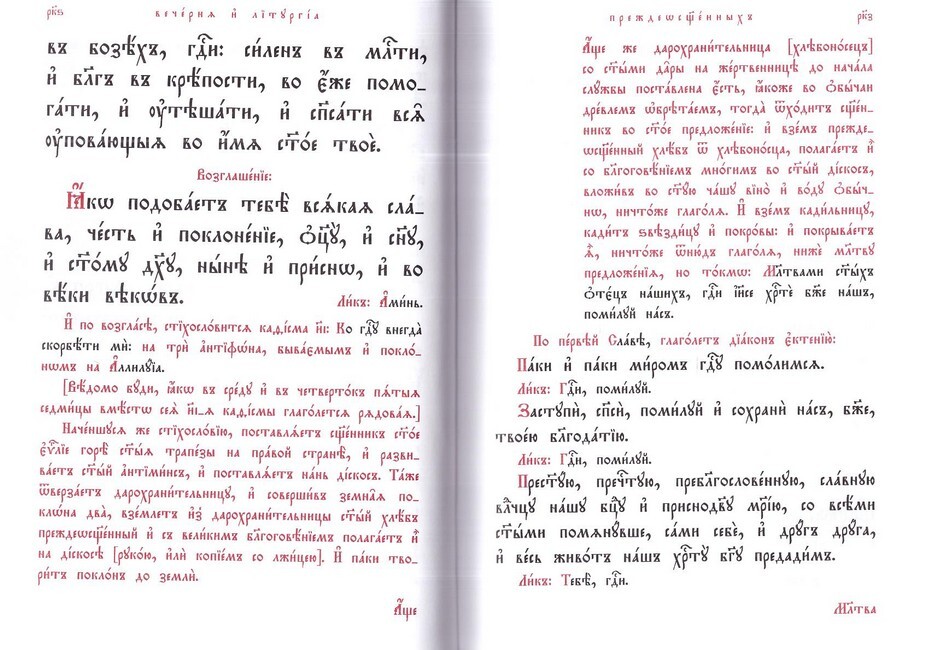 рк҃ѕ
вече́рнѧ и҆ лїтꙋргі́а
въ бозѣ́хъ, гд҇и: си́ленъ въ мл҇ти,
и҆ бл҃гъ въ крѣ́пости, во є҆́же помо-
га́ти, и҆ ᲂу҆тѣша́ти, и҆ сп҃са́ти всѧ̑
ᲂу҆пова́ющыѧ во и҆́мѧ ст҃о́е твоѐ.
Возглаше́нїе:
Ꙗ҆́кѡ подоба́етъ тебѣ̀ всѧ́каѧ сла́-
ва, че́сть и҆ поклоне́нїе, ѻ҆ц҃ꙋ̀, и҆ сн҃ꙋ,
и҆ ст҃о́мꙋ дх҃ꙋ, ны́нѣ и҆ при́снѡ, и҆ во
вѣ́ки вѣкѡ́въ.
Ли́къ: А҆ми́нь.
И҆ по во́згласѣ, стїхосло́витсѧ каѳі́сма и҃і: Ко гд҇ꙋ внегда̀
скорбѣ́ти мѝ: на трѝ а҆нтїфѡ́на, быва́ємымъ и҆ покло́-
нѡмъ на А҆ллилꙋ́їа.
[Вѣ́домо бꙋ́ди, ꙗ҆́кѡ въ сре́дꙋ и҆ въ четверто́къ пѧ́тыѧ
седми́цы вмѣ́стѡ сеѧ̀ и҃і-ѧ каѳі́смы глаго́летсѧ рѧдова́ѧ.]
Наче́ншꙋсѧ же стїхосло́вїю, поставлѧ́етъ сщ҃е́нникъ ст҃о́е
є҆ѵⷢ҇лїе горѣ̀ ст҃ы́ѧ трапе́зы на пра́вой странѣ̀, и҆ разви-
ва́етъ ст҃ы́й а҆нтїми́нсъ, и҆ поставлѧ́етъ на́нь ді́скосъ. Та́же
ѿверза́етъ дарохрани́тельницꙋ, и҆ соверши́въ земна̑ѧ по-
клѡ́на два̀, взе́млетъ и҆з̾ дарохрани́тельницы ст҃ы́й хлѣ́бъ
преждеѡсщ҃е́нный и҆ съ вели́кимъ бл҃гоговѣ́нїемъ полага́етъ и҆̀
на ді́скосѣ [рꙋко́ю, и҆лѝ копїе́мъ со лжи́цею]. И҆ па́ки тво-
ри́тъ покло́нъ до землѝ.
А҆́ще
преждеѡсщ҃е́нныхъ
рк҃з
А҆́ще же дарохрани́тельница [хлѣбоно́сецъ]
со ст҃ы́ми да̑ры на же́ртвенницѣ до нача́ла
слꙋ́жбы поста́влена є҆́сть, ꙗ҆́коже во ѻ҆бы́чаи
дре́влемъ ѡ҆брѣта́емъ, тогда̀ ѿхо́дитъ сщ҃е́н-
никъ во ст҃о́е предложе́нїе: и҆ взе́мъ прежде-
ѡсщ҃е́нный хлѣ́бъ ѿ хлѣбоно́сца, полага́етъ и҆̀
со бл҃гоговѣ́нїемъ мно́гимъ во ст҃ы́й ді́скосъ,
вложи́въ во ст҃ꙋ́ю ча́шꙋ вїно̀ и҆ во́дꙋ ѻ҆бы́ч-
нѡ, ничто́же глаго́лѧ. И҆ взе́мъ кади́льницꙋ,
кади́тъ ѕвѣзди́цꙋ и҆ покро́вы: и҆ покрыва́етъ
ѧ҆̀, ничто́же ѿню́дъ глаго́лѧ, нижѐ мл҃твꙋ
предложе́нїѧ, но то́кмѡ: Мл҃твами ст҃ы́хъ
ѻ҆тє́цъ на́шихъ, гд҇и і҆и҃се хрⷭ҇тѐ бж҃е на́шъ,
поми́лꙋй на́съ.
По пе́рвѣй Сла́вѣ, глаго́летъ дїа́конъ є҆ктенїю̀:
Па́ки и҆ па́ки ми́ромъ гд҇ꙋ помо́лимсѧ.
Ли́къ: Гд҇и, поми́лꙋй.
Застꙋпѝ, сп҃сѝ, поми́лꙋй и҆ сохранѝ на́съ, бж҃е,
твое́ю бл҃года́тїю.
Ли́къ: Гд҇и, поми́лꙋй.
Прест҃ꙋ́ю, пречⷭ҇тꙋю, пребл҃гослове́ннꙋю, сла́внꙋю
влⷣчцꙋ на́шꙋ бцⷣꙋ и҆ приснодв҃ꙋ мр҃і́ю, со всѣ́ми
ст҃ы́ми помѧнꙋ́вше, са́ми себѐ, и҆ дрꙋ́гъ дрꙋ́га,
и҆ ве́сь живо́тъ на́шъ хрⷭ҇тꙋ̀ бг҃ꙋ предади́мъ.
Ли́къ: Тебѣ̀, гд҇и.
Мл҃тва